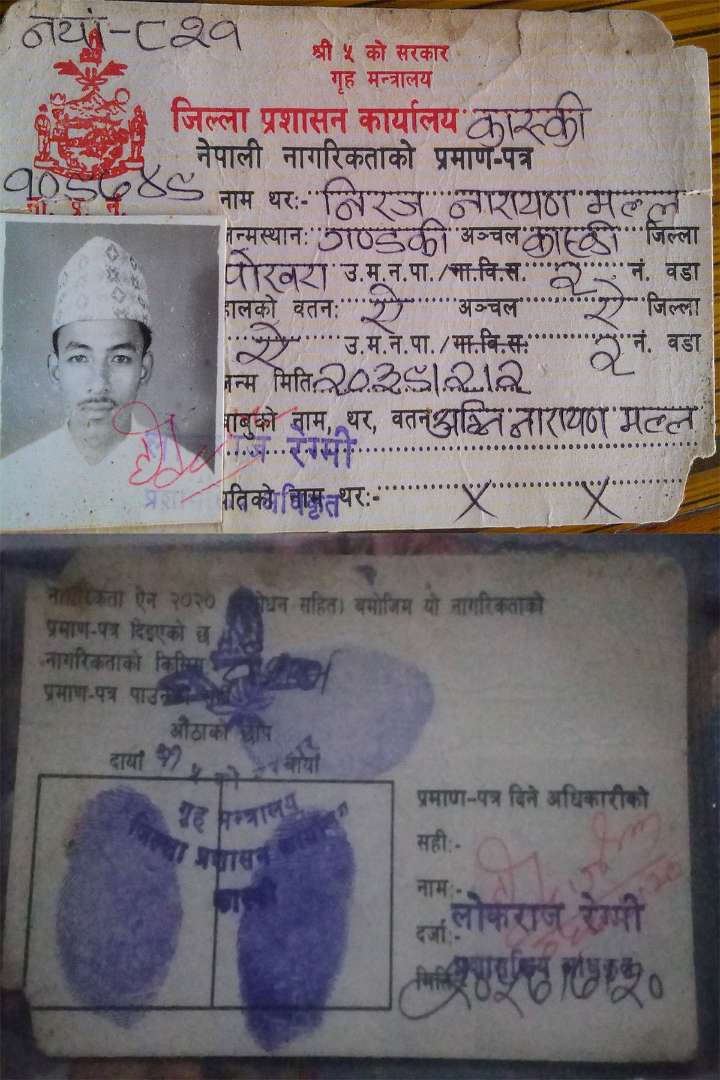 नयां-८२१
श्री ५ को सरकार
गृह मन्त्रालय
जिल्ला प्रशासन कार्यालय कास्की
नेपाली नागरिकताको प्रमाण-पत्र
ना. प्र. नं.
नाम थर:- निरज नारायण मल्ल
जन्मस्थान: गण्डकी अञ्चल कास्की जिल्ला
पोखरा उ.म.न.पा./गा.वि.स. २ नं. वडा
हालको वतन: ऐ अञ्चल ऐ जिल्ला
ऐ उ.म.न.पा./गा.वि.स. २ नं. वडा
जन्म मिति
बाबुको नाम, थर, वतन नारायण मल्ल
रेग्मी
पतिको नाम थर:- X X
नागरिकता ऐन २०२० सहित) बमोजिम यो नागरिकताको
प्रमाण-पत्र दिइएको छ
नागरिकताको किसिम
प्रमाण-पत्र पाउनेको
औंठाको छाप
दायाँ बायाँ
गृह मन्त्रालय
जिल्ला प्रशासन कार्यालय
कास्की
प्रमाण-पत्र दिने अधिकारीको
सही:-
नाम:-
लोकराज रेग्मी
दर्जा:-
मिति